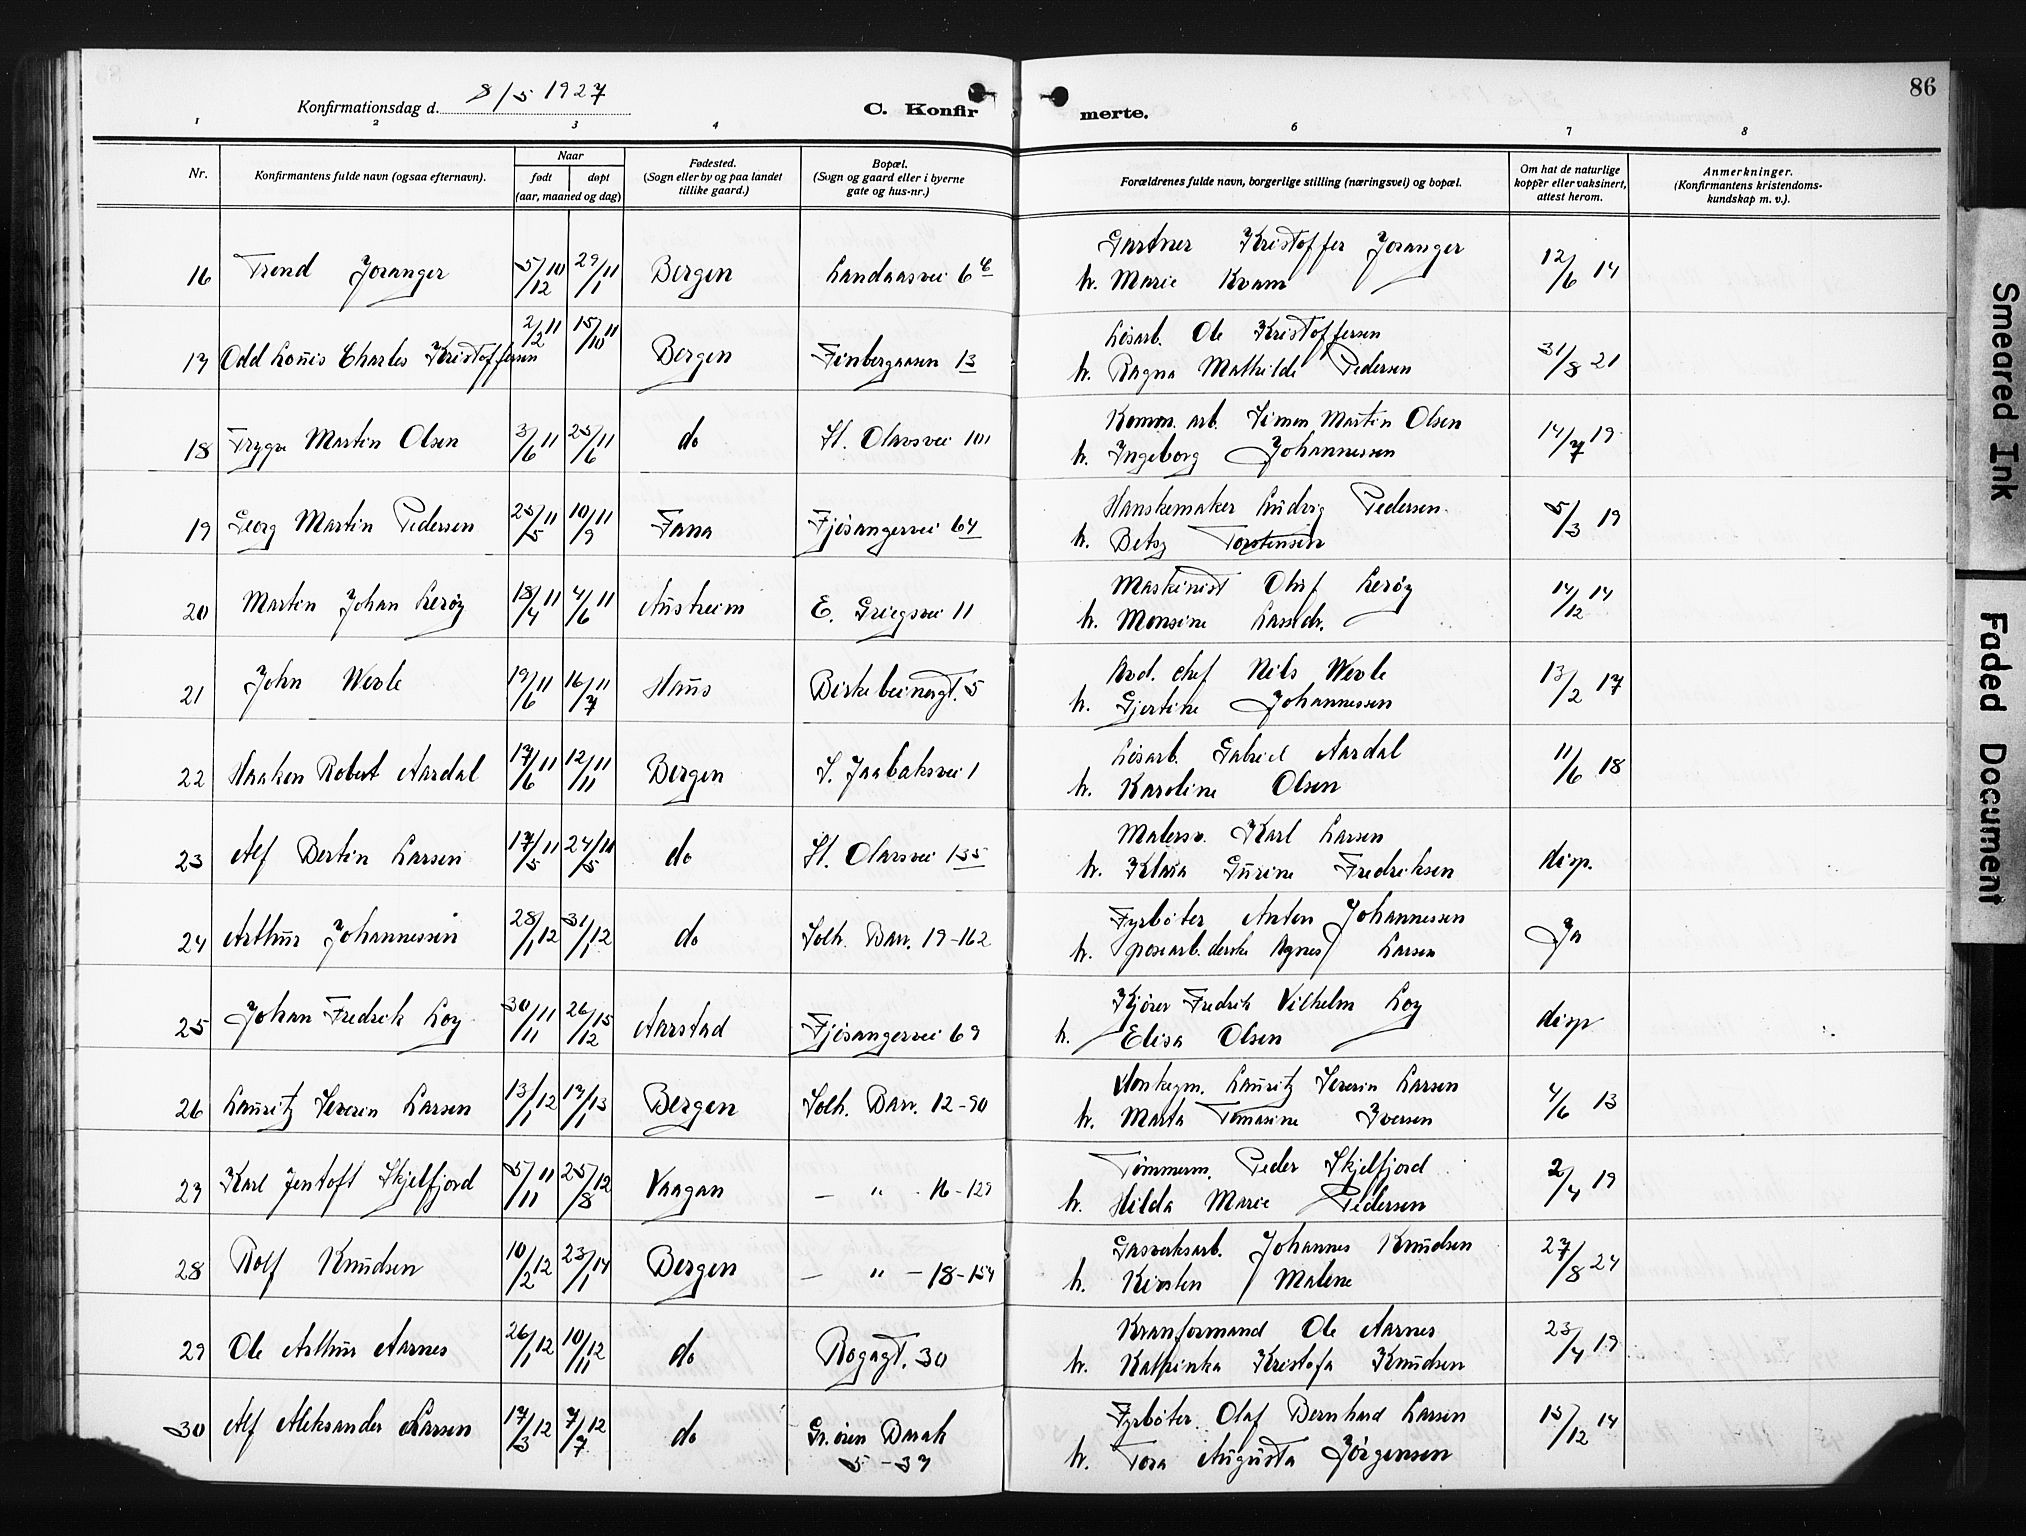 86
Konfirmationsdag d. 8/5 1927
C. Konfirmerte.
1 2 3 4 6 7 8
Nr.
Konfirmantens fulde navn (ogsaa efternavn).
Naar
født døpt
(aar, maaned og dag)
Fødested.
(Sogn eller by og paa landet
tillike gaard.)
Bopæl.
(Sogn og gaard eller i byerne
gate og hus-nr.)
Forældrenes fulde navn, borgerlige stilling (næringsvei) og bopæl.
Om hat de naturlige
kopper eller vaksinert,
attest herom.
Anmerkninger.
(Konfirmantens kristendoms-
kundskap m. v.).
16 Trond Joranger 5/12 10 29/1 11 Bergen Landaasvei 6 Gartner Kristoffer Joranger
h. Marie Kvam 12/6 14
17 Odd Louis Charles Kristoffersen 2/2 11 15/10 11 Bergen Finbergaasen 13 Løsarb. Ole Kristoffersen
h. Ragna Mathilde Pedersen 31/8 21
18 Trygve Martin Olsen 3/6 11 25/6 11 do St. Olavsvei 101 Komm. arb. Simon Martin Olsen
h. Ingeborg Johannessen 14/7 19
19 Georg Martin Pedersen 25/5 11 10/9 11 Fana Fjøsangervei 64 Hanskemaker Ludvig Pedersen
h. Betsy Torstensen 5/3 19
20 Martin Johan Lerøy 18/4 11 4/6 11 Austrheim E. Griegsvei 11 Maskinist Olaf Lerøy
h. Monsine Larsdr. 14/12 14
21 John Wevle 19/6 11 16/7 11 Haus Birkebeinergt. 5 Avd. chef Nils Wevle
h. Gjertine Johannessen 13/2 17
22 Haakon Robert Aardal 17/6 11 12/11 11 Bergen S. Jaabaksvei 1 Løsarb. Gabriel Aardal
h. Karoline Olsen 11/6 18
23 Alf Bertin Larsen 17/5 11 24/5 11 do St. Olavsvei 135 Malersv. Karl Larsen
h. Klara Gurine Fredriksen disp.
24 Arthur Johannessen 28/1 12 31/1 12 do Solh. Bar. 19-162 Fyrbøter Anton Johannessen
h. poscarb.derske Agnes Larsen Ja
25 Johan Fredrik Loy 30/11 11 26/12 15 Aarstad Fjøsangervei 69 Kjører Fredrik Vilhelm Loy
h. Elisa Olsen disp
26 Lauritz Severin Larsen 13/1 12 17/1 13 Bergen Solh. Bar. 12-90 Lauritz Severin Larsen
h. Marta Tomasine Iversen 4/6 13
27 Karl Jentoft Skjelfjord 5/11 11 25/8 12 Vaagan — " - 16-129 Tømmerm. Peder Skjelfjord
h. Hilda Marie Pedersen 2/4 19
28 Rolf Knudsen 10/2 12 23/1 14 Bergen — " - 18-154 Gasverksarb. Johannes Knudsen
h. Kirsten Malene 27/8 24
29 Ole Arthur Aarnes 26/1 12 10/11 12 do Rogagt. 30 Kranformand Ole Aarnes
h. Kathinka Kristofa Knudsen 23/4 19
30 Alf Aleksander Larsen 17/3 12 7/7 12 do Gr.øren Barak
5-37 Fyrbøter Olaf Bernhard Larsen
h. Tora Augusta Jørgensen 15/12 14
Smeared Ink
Faded Document